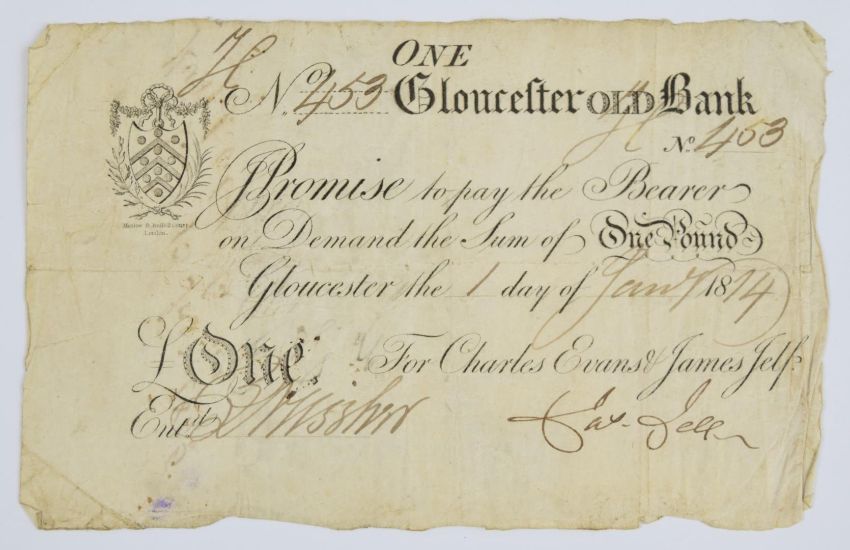 ONE
H
No. 453 Gloucester OLD Bank
H
No. 453
I Promise to pay the Bearer
on Demand the Sum of One Pound
Gloucester the 1 day of Jany 1814
£ One. For Charles Evans & James Jelf.
Entd.
Jas. Jelf
London.